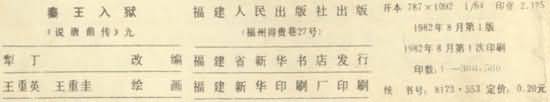 秦王入狱
(说唐前传)九
犁丁 改编
王重英 王重圭 绘画
福建人民出版社出版
(福州得贵巷27号)
福建省新华书店发行
福建新华印刷厂印刷
开本 787×1092 1/64 印张 2.125
1982年8月第1版
1982年8月第1次印刷
印数:1—304,500
统一书号:8173·553 定价:0.20元